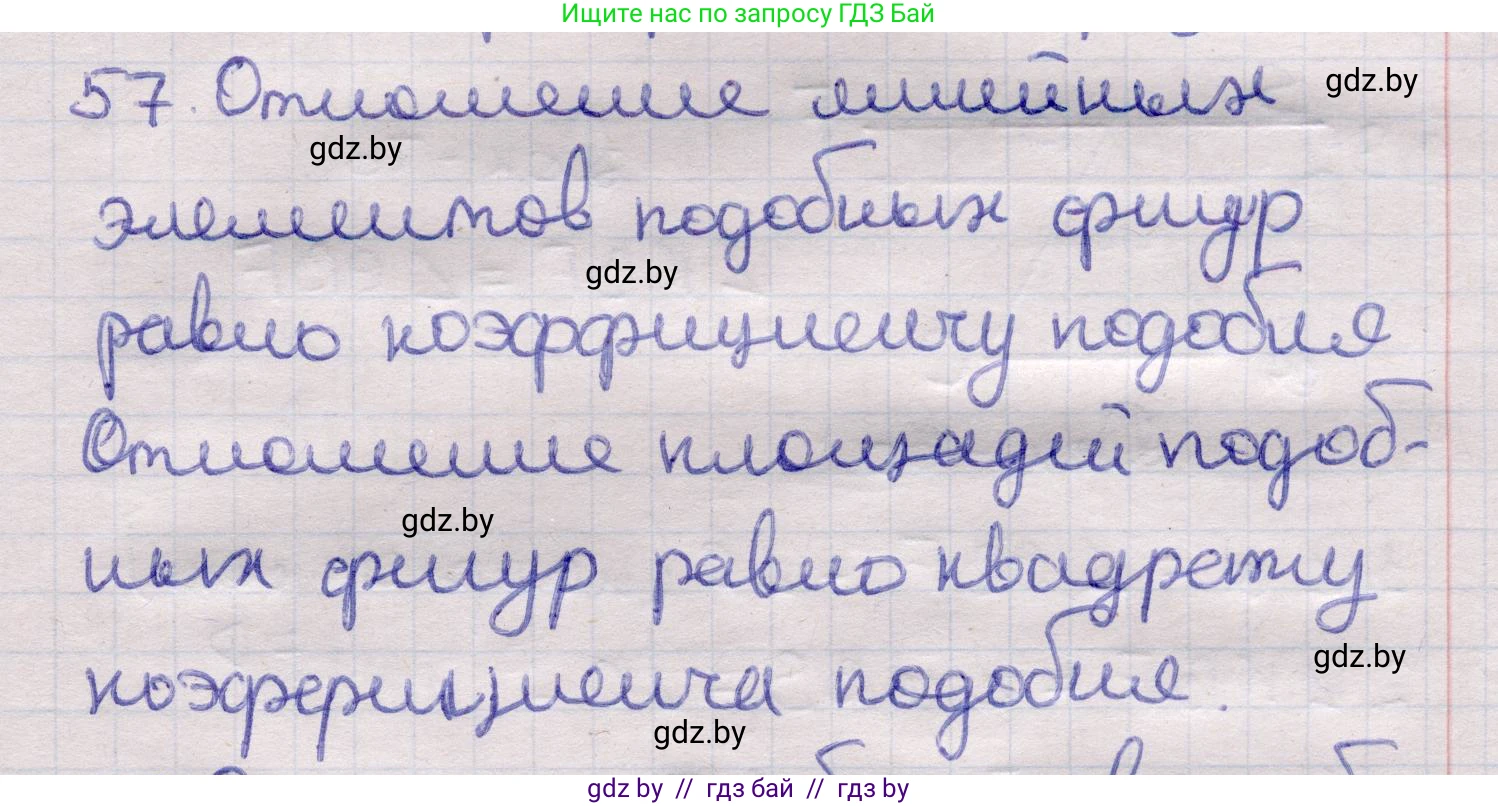 Ищите нас по запросу ГДЗ Бай
57. Отношение линейных
gdz.by
gdz.by
элементов подобных фигур
gdz.by
равно коэффициенту подобия
Отношение площадей подоб-
gdz.by
ных фигур равно квадрату
gdz.by
коэффициента подобия.
gdz.by
gdz.by // гдз бай // гдз by